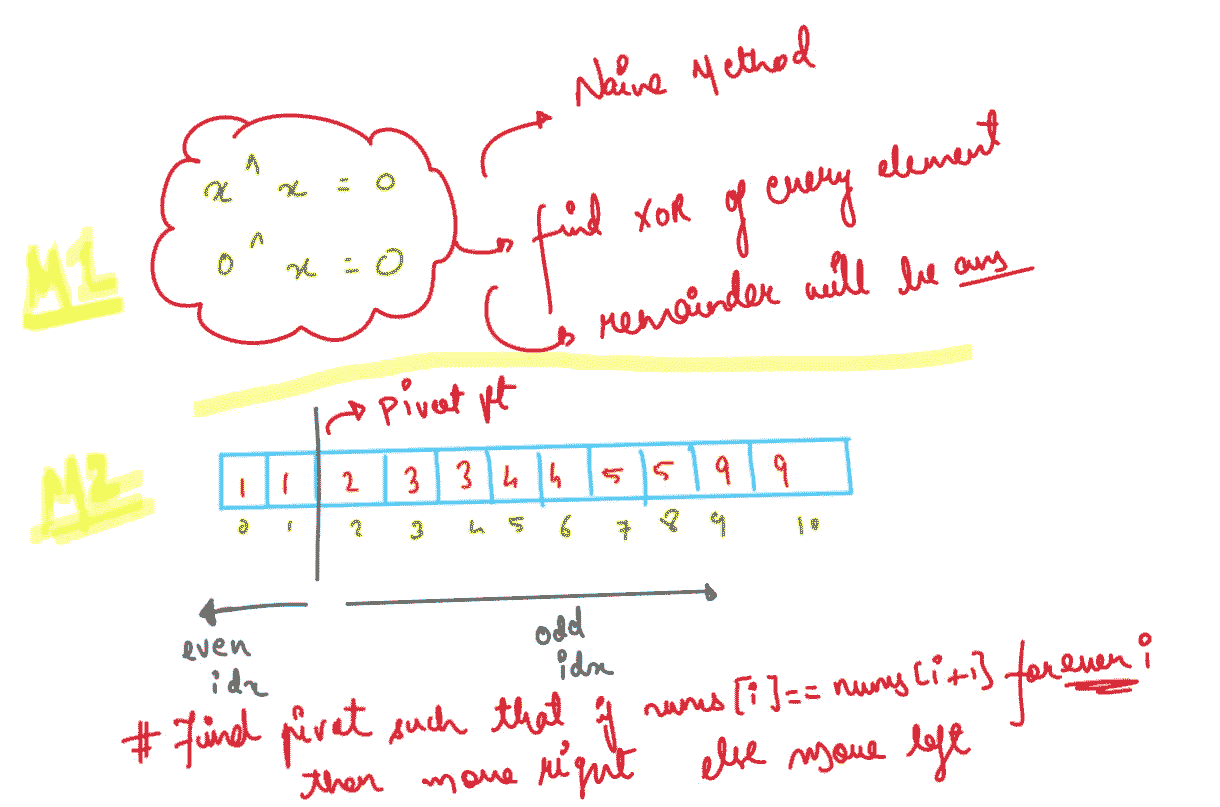 Naive Method
x ^ x = 0
0 ^ x = 0
find XOR of every element
M1
remainder will be ans
Pivot pt
M2
1 1 2 3 3 4 4 5 5 9 9
0 1 2 3 4 5 6 7 8 9 10
even idx
odd idx
# Find pivot such that if nums[i]==nums[i+1] for even i
then move right else move left